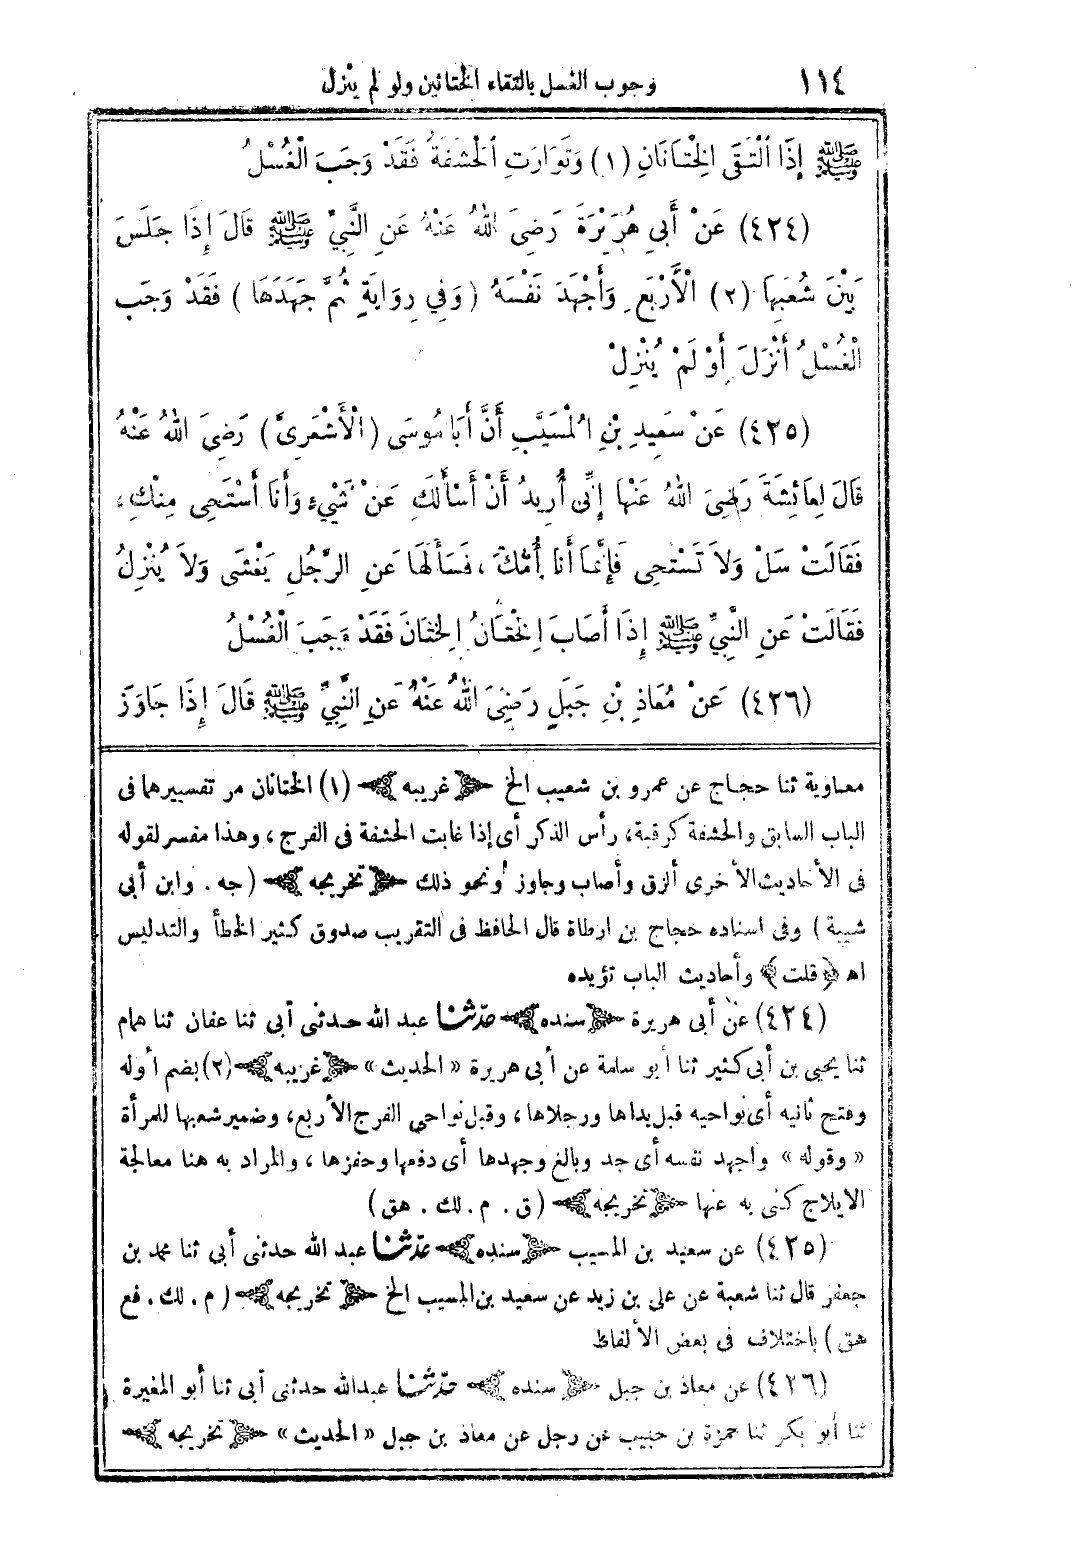 ١١٤ وجوب الغسل بالتقاء الختانين ولو لم ينزل
ﷺ إِذَا الْتَقَى الْخِتَانَانِ (١) وَتَوَارَتِ الْحَشَفَةُ فَقَدْ وَجَبَ الْغُسْلُ
(٤٢٤) عَنْ أَبِي هُرَيْرَةَ رَضِيَ اللهُ عَنْهُ عَنِ النَّبِيِّ ﷺ قَالَ إِذَا جَلَسَ
بَيْنَ شُعَبِهَا (٢) الْأَرْبَعِ وَأَجْهَدَ نَفْسَهُ (وَفِي رِوَايَةٍ ثُمَّ جَهَدَهَا) فَقَدْ وَجَبَ
الْغُسْلُ أَنْزَلَ أَوْ لَمْ يُنْزِلْ
(٤٢٥) عَنْ سَعِيدِ بْنِ الْمُسَيَّبِ أَنَّ أَبَا مُوسَى (الْأَشْعَرِىَّ) رَضِيَ اللهُ عَنْهُ
قَالَ لِعَائِشَةَ رَضِيَ اللهُ عَنْهَا إِنِّى أُرِيدُ أَنْ أَسْأَلَكِ عَنْ شَيْءٍ وَأَنَا أَسْتَحِى مِنْكِ،
فَقَالَتْ سَلْ وَلاَ تَسْتَحِى فَإِنَّمَا أَنَا أُمُّكَ، فَسَأَلَهَا عَنِ الرَّجُلِ يَغْشَى وَلاَ يُنْزِلُ
فَقَالَتْ عَنِ النَّبِيِّ ﷺ إِذَا أَصَابَ الْخِتَانُ الْخِتَانَ فَقَدْ وَجَبَ الْغُسْلُ
(٤٢٦) عَنْ مُعَاذِ بْنِ جَبَلٍ رَضِيَ اللهُ عَنْهُ عَنِ النَّبِيِّ ﷺ قَالَ إِذَا جَاوَزَ
معاوية ثنا حجاج عن عمرو بن شعيب الخ ﴿غريبه﴾ (١) الختانان مر تفسيرهما فى
الباب السابق والحشفة كرقبة، رأس الذكر أى إذا غابت الحشفة فى الفرج، وهذا مفسر لقوله
فى الأحاديث الأخرى ألزق وأصاب وجاوز ونحو ذلك ﴿تخريجه﴾ (جه. وابن أبى
شيبة) وفى اسناده حجاج بن ارطاة قال الحافظ فى التقريب صدوق كثير الخطأ والتدليس
اهـ ﴿قلت﴾ وأحاديث الباب تؤيده
(٤٢٤) عن أبى هريرة ﴿سنده﴾ حدثنا عبد الله حدثنى أبى ثنا عفان ثنا همام
ثنا يحيى بن أبى كثير ثنا أبو سلمة عن أبى هريرة «الحديث» ﴿غريبه﴾ (٢) بضم أوله
وفتح ثانيه أى نواحيه قيل يداها ورجلاها، وقيل نواحي الفرج الأربع، وضمير شعبها للمرأة
«وقوله» واجهد نفسه أى جد وبالغ وجهدها أى دفعها وحفزها، والمراد به هنا معالجة
الايلاج كنى به عنها ﴿تخريجه﴾ (ق. م. لك. هق)
(٤٢٥) عن سعيد بن المسيب ﴿سنده﴾ حدثنا عبد الله حدثنى أبي ثنا محمد بن
جعفر قال ثنا شعبة عن على بن زيد عن سعيد بن المسيب الخ ﴿تخريجه﴾ (م. لك. فع
هق) باختلاف فى بعض الألفاظ
(٤٢٦) عن معاذ بن جبل ﴿سنده﴾ حدثنا عبد الله حدثنى أبى ثنا أبو المغيرة
ثنا أبو بكر ثنا حمزة بن حبيب عن رجل عن معاذ بن جبل «الحديث» ﴿تخريجه﴾